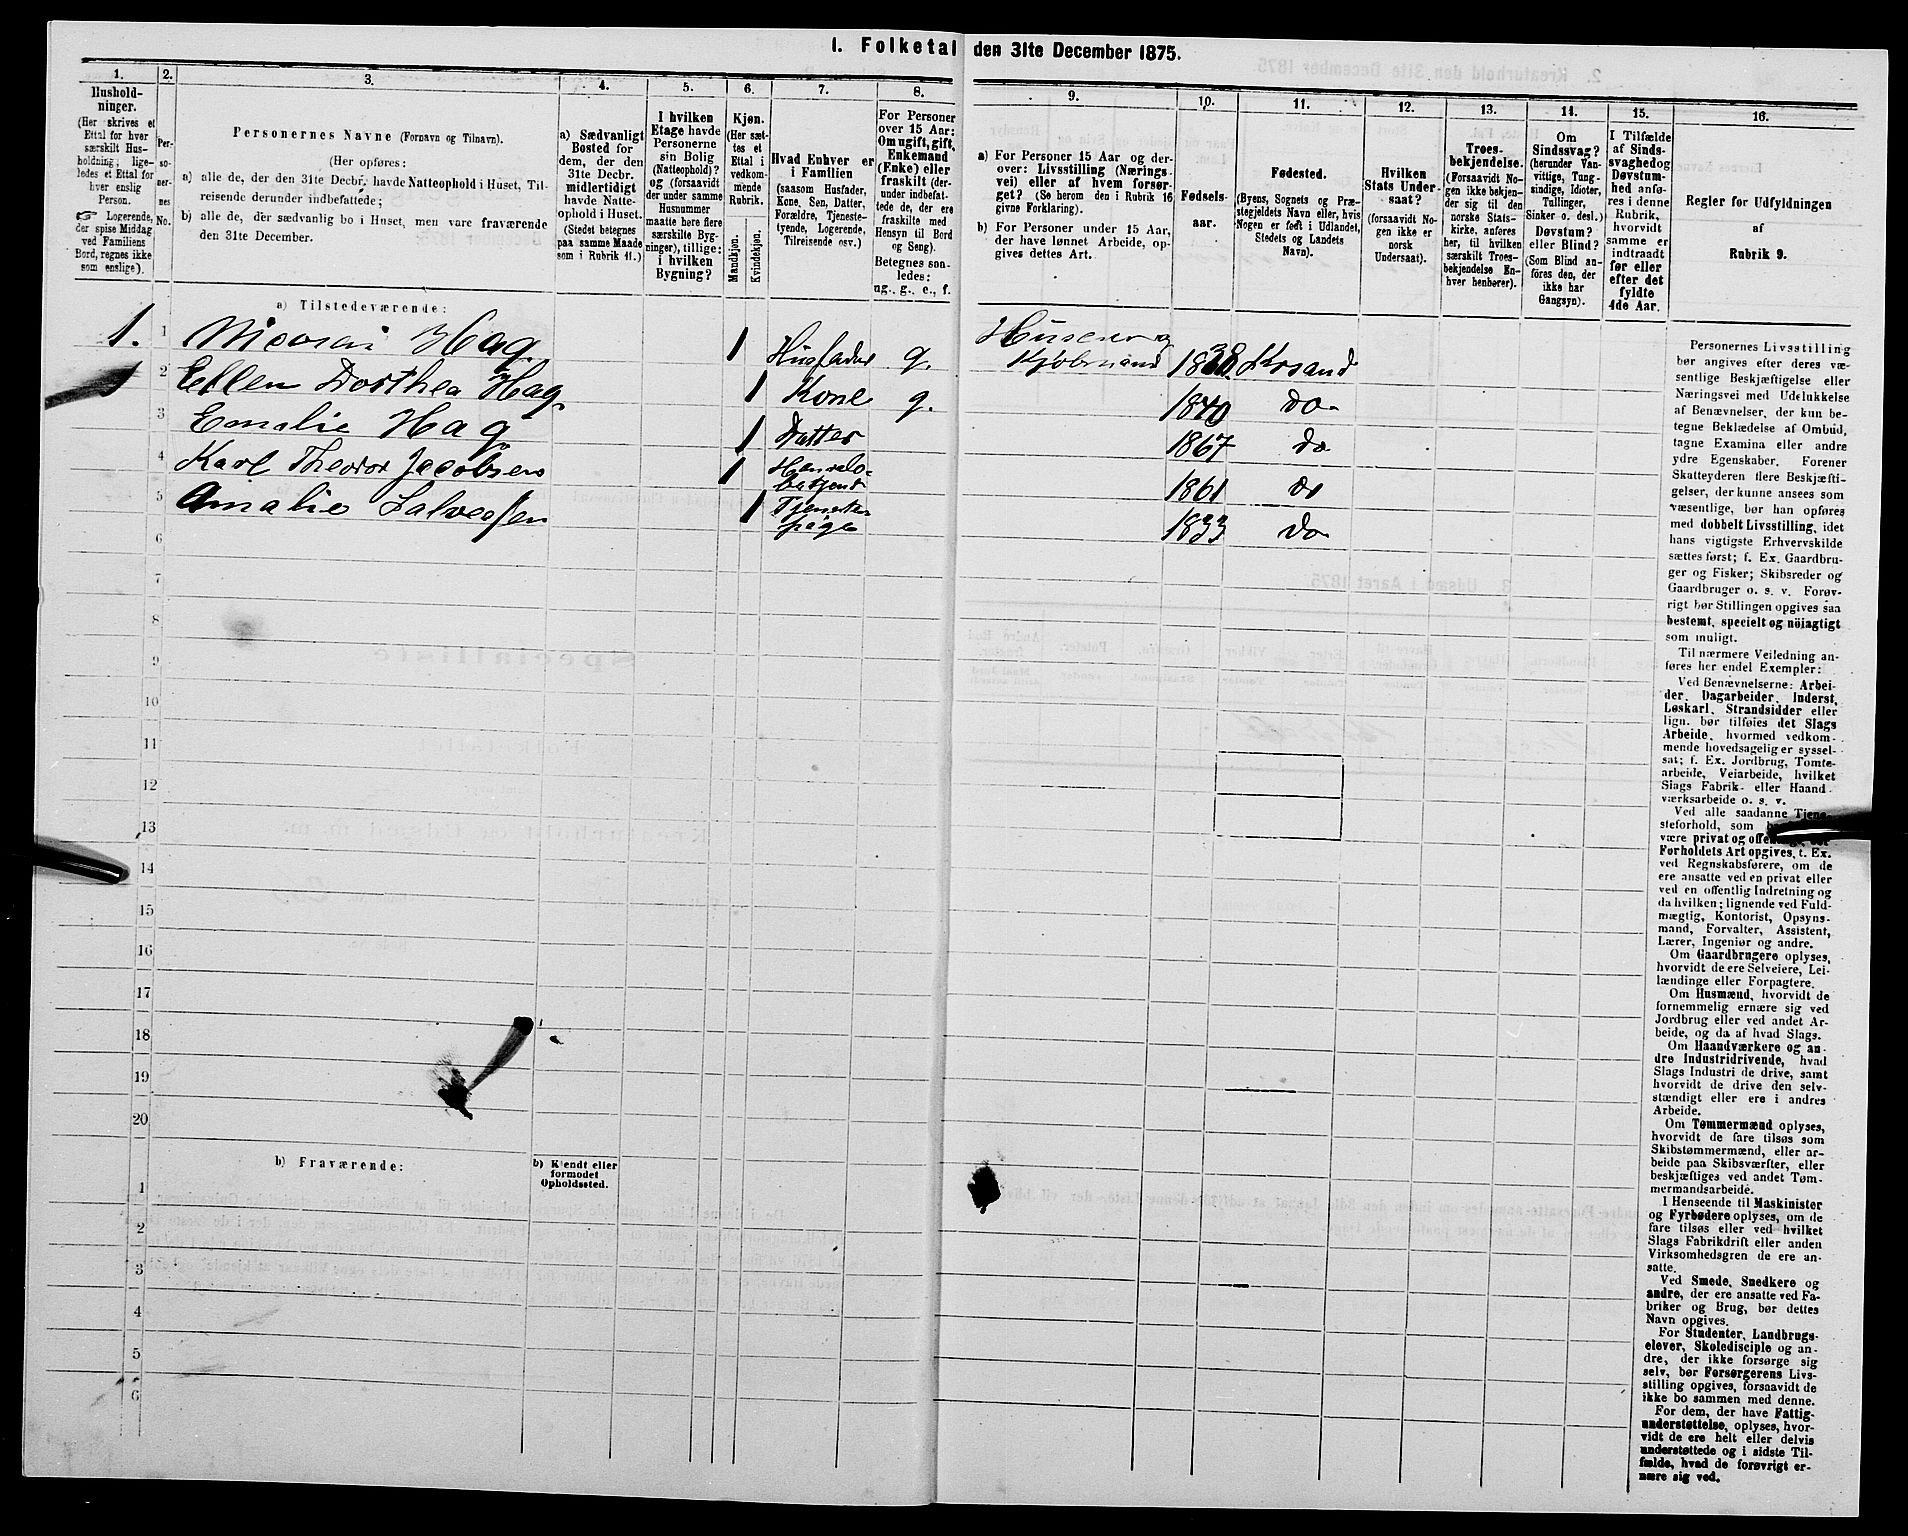 1. Folketal den 31te December 1875.
1.
Hushold-
ninger.
(Her skrives et
Ettal for hver
særskilt Hus-
holdning; lige-
ledes et Ettal for
hver enslig
Person.
Logerende,
der spise Middag
ved Familiens
Bord, regnes ikke
som enslige).
2.
Per-
so-
ner-
nes
No.
3.
Personernes Navne (Fornavn og Tilnavn).
(Her opføres:
a) alle de, der den 31te Decbr. havde Natteophold i Huset, Til-
reisende derunder indbefattede;
b) alle de, der sædvanlig bo i Huset, men vare fraværende
den 31te December.
4.
a) Sædvanligt
Bosted for
dem, der den
31te Decbr.
midlertidigt
havde Natte-
ophold i Huset.
(Stedet betegnes
paa samme Maade
som i Rubrik 11.)
5.
I hvilken
Etage havde
Personerne
sin Bolig
(Natteophold)?
og (forsaavidt
der under
samme
Husnummer
maatte høre flere
særskilte Byg-
ninger), tillige:
i hvilken
Bygning?
6.
Kjøn.
(Her sæt-
tes et
Ettal i
vedkom-
mende
Rubrik.
Mandkjøn.
Kvindekjøn.
7.
Hvad Enhver er
i Familien
(saasom Husfader,
Kone, Søn, Datter,
Forældre, Tjeneste-
tyende, Logerende,
Tilreisende osv.)
8.
For Personer
over 15 Aar:
Om ugift, gift,
Enkemand
(Enke) eller
fraskilt (der-
under indbefat-
tede de, der ere
fraskilte med
Hensyn til Bord
og Seng).
Betegnes saa-
ledes:
ug., g., e., f.
9.
a) For Personer 15 Aar og der-
over: Livsstilling (Nærings-
vei) eller af hvem forsør-
get? (Se herom den i Rubrik 16
givne Forklaring).
b) For Personer under 15 Aar,
der have lønnet Arbeide, op-
gives dettes Art.
10.
Fødsels-
aar.
11.
Fødested.
(Byens, Sognets og Præ-
stegjeldets Navn eller, hvis
Nogen er født i Udlandet,
Stedets og Landets
Navn).
12.
Hvilken
Stats Under-
saat?
(forsaavidt No-
gen ikke er
norsk
Undersaat).
13.
Troes-
bekjendelse.
(Forsaavidt No-
gen ikke bekjen-
der sig til den
norske Stats-
kirke, anføres
her, til hvilken
særskilt Troes-
bekjendelse En-
hver henhører).
14.
Om
Sindssvag?
(herunder Van-
vittige, Tung-
sindige, Idioter,
Tullinger,
Sinker o. desl.)
Døvstum?
eller Blind?
(Som Blind an-
føres den, der
ikke har
Gangsyn).
15.
I Tilfælde
af Sinds-
svaghed og
Døvstum-
hed anfø-
res i denne
Rubrik,
hvorvidt
samme er
indtraadt
før eller
efter det
fyldte
4de Aar.
16.
Regler for Udfyldningen
af
Rubrik 9.
a) Tilstedeværende:
1. 1 Nicolai Hag. 1 Husfader g. Huseier og
Kjøbmand 1838 Krsand
2 Ellen Dorthea Hag. 1 Kone g. 1840 do
3 Emalie Hag 1 Datter 1867 do
4 Karl Theodor Jacobsen 1 Handels-
betjent 1861 do
5 Amalie Salvesen 1 Tjeneste-
pige 1833 do
6
7
8
9
10
11
12
13
14
15
16
17
18
19
20
b) Fraværende:
b) Kjendt eller
formodet
Opholdssted.
1
2
3
4
5
6
Personernes Livsstilling
bør angives efter deres væ-
sentlige Beskjæftigelse eller
Næringsvei med Udelukkelse
af Benævnelser, der kun be-
tegne Beklædelse af Ombud,
tagne Examina eller andre
ydre Egenskaber. Forener
Skatteyderen flere Beskjæfti-
gelser, der kunne ansees som
væsentlige, bør han opføres
med dobbelt Livsstilling, idet
hans vigtigste Erhvervskilde
sættes først; f. Ex. Gaardbru-
ger og Fisker; Skibsreder og
Gaardbruger o. s. v. Forøv-
rigt bør Stillingen opgives saa
bestemt, specielt og nøiagtigt
som muligt.
Til nærmere Veiledning an-
føres her endel Exempler:
Ved Benævnelserne: Arbei-
der, Dagarbeider, Inderst,
Løskarl, Strandsidder eller
lign. bør tilføies det Slags
Arbeide, hvormed vedkom-
mende hovedsagelig er syssel-
sat; f. Ex. Jordbrug, Tomte-
arbeide, Veiarbeide, hvilket
Slags Fabrik- eller Haand-
værksarbeide o. s. v.
Ved alle saadanne Tjene-
steforhold, som
være privat og
Forholdets Art opgives, t. Ex.
ved Regnskabsførere, om de
ere ansatte ved en privat eller
ved en offentlig Indretning og
da hvilken; lignende ved Fuld-
mægtig, Kontorist, Opsyns-
mand, Forvalter, Assistent,
Lærer, Ingeniør og andre.
Om Gaardbrugere oplyses,
hvorvidt de ere Selveiere, Lei-
lændinge eller Forpagtere.
Om Husmænd, hvorvidt de
fornemmelig ernære sig ved
Jordbrug eller ved andet Ar-
beide, og da af hvad Slags.
Om Haandværkere og an-
dre Industridrivende, hvad
Slags Industri de drive, samt
hvorvidt de drive den selv-
stændigt eller ere i andres
Arbeide.
Om Tømmermænd oplyses,
hvorvidt de fare tilsøs som
Skibstømmermænd, eller ar-
beide paa Skibsværfter, eller
beskjæftiges ved andet Tøm-
mermandsarbeide.
I Henseende til Maskinister
og Fyrbødere oplyses, om de
fare tilsøs eller ved hvilket
Slags Fabrikdrift eller anden
Virksomhedsgren de ere an-
satte.
Ved Smede, Snedkere og
andre, der ere ansatte ved Fa-
briker og Brug, bør dettes
Navn opgives.
For Studenter, Landbrugs-
elever, Skoledisciple og an-
dre, der ikke forsørge sig
selv, bør Forsørgerens Livs-
stilling opgives, forsaavidt de
ikke bo sammen med denne.
For dem, der have Fattig-
understøttelse, oplyses, hvor-
vidt de ere helt eller delvis
understøttede og i sidste Til-
fælde, hvad de forøvrigt er-
nære sig ved.